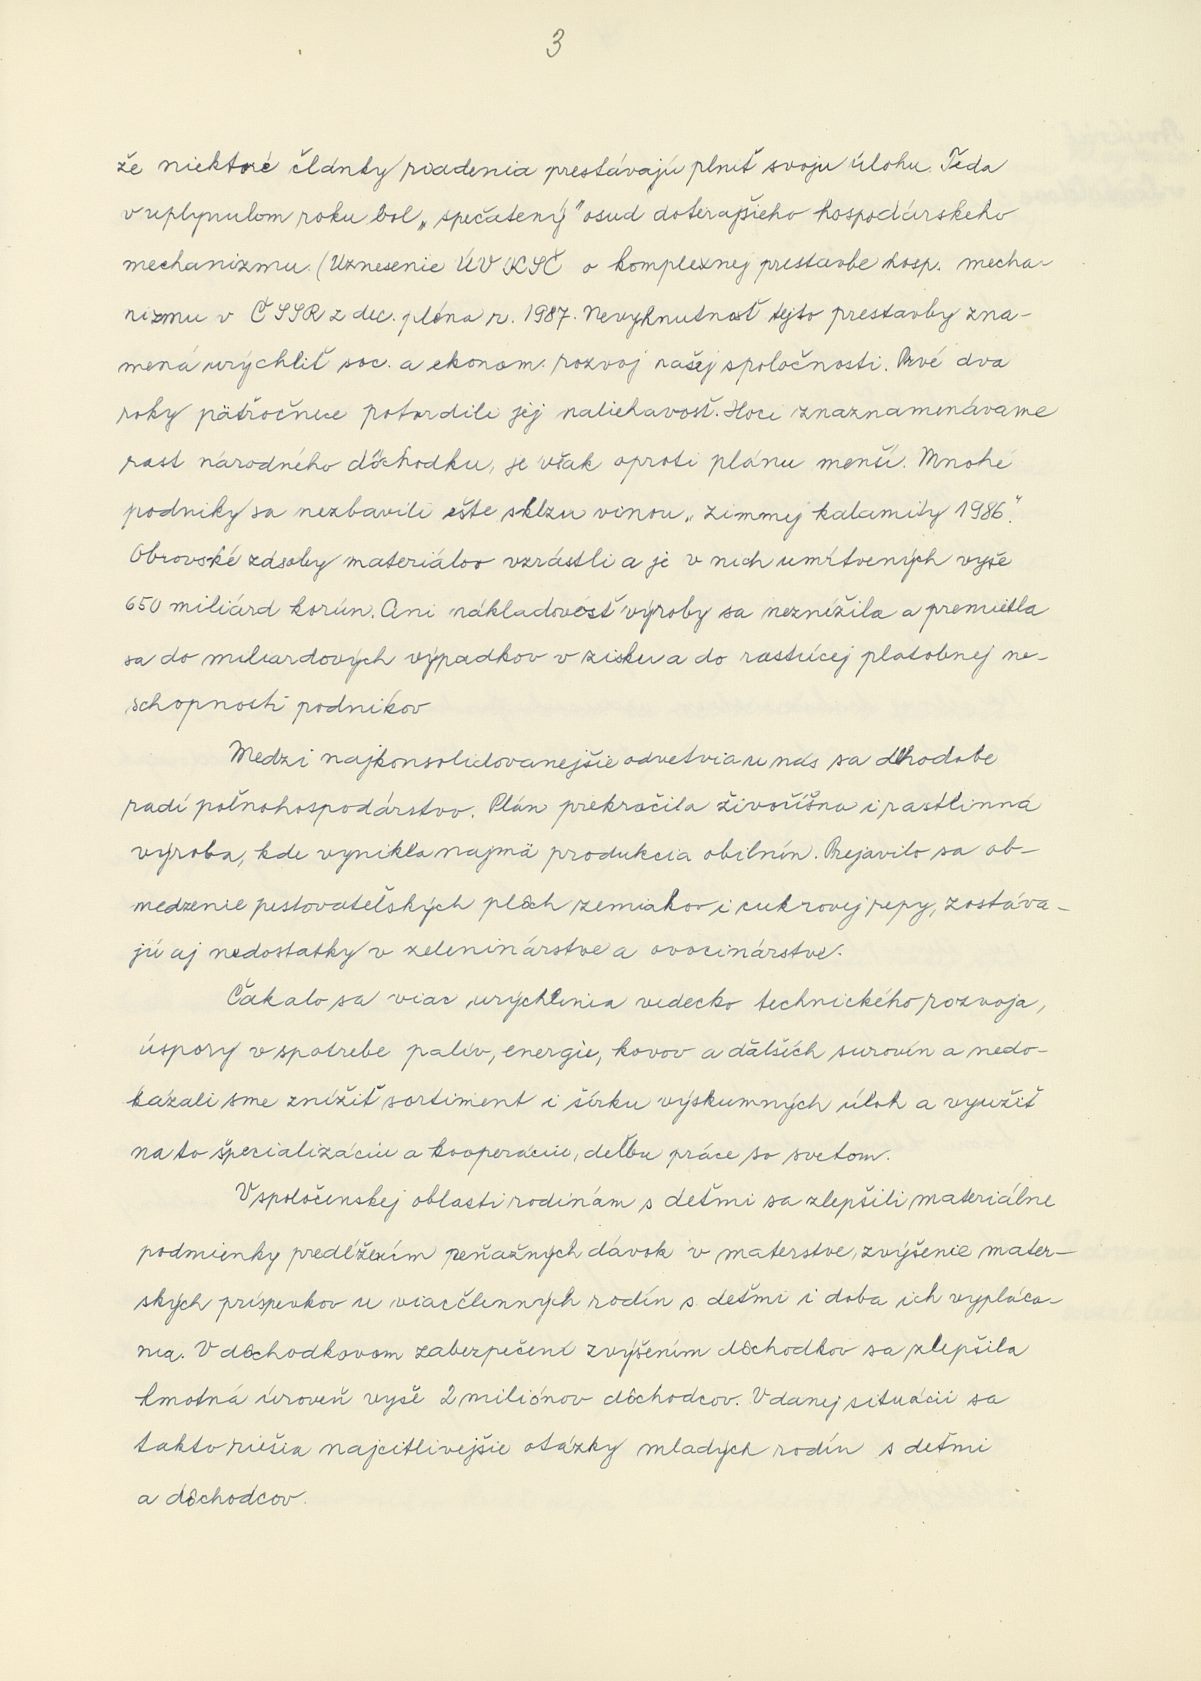 3
že niektoré články riadenia prestávajú plniť svoju úlohu. Teda
v uplynulom roku bol „spečatený" osud doterajšieho hospodárskeho
mechanizmu. (Uznesenie ÚV KSČ o komplexnej prestavbe hosp. mecha-
nizmu v ČSSR z dec. pléna r. 1987. Nevyhnutnosť tejto prestavby zna-
mená urýchliť soc. a ekonom. rozvoj našej spoločnosti. Prvé dva
roky päťročnice potvrdili jej naliehavosť. Hoci znaznamenávame
rast národného dôchodku, je však oproti plánu menší. Mnohé
podniky sa nezbavili ešte sklzu vinou „zimnej kalamity 1986".
Obrovské zásoby materiálov vzrástli a je v nich umŕtvených vyše
650 miliárd korún. Ani nákladovosť výroby sa neznížila a premietla
sa do miliardových výpadkov v zisku a do rastúcej platobnej ne-
schopnosti podnikov
Medzi najkonsolidovanejšie odvetvia u nás sa dlhodobe
radí poľnohospodárstvo. Plán prekročila živočíšna i rastlinná
výroba, kde vynikla najmä produkcia obilnín. Prejavilo sa ob-
medzenie pestovateľských plôch zemiakov i cukrovej repy, zostáva-
jú aj nedostatky v zeleninárstve a ovocinárstve.
Čakalo sa viac urýchlenia vedecko technického rozvoja,
úspory v spotrebe palív, energie, kovov a ďalších surovín a nedo-
kázali sme znížiť sortiment i šírku výskumných úloh a využiť
na to špecializáciu a kooperáciu, deľbu práce so svetom.
V spoločenskej oblasti rodinám s deťmi sa zlepšili materiálne
podmienky predĺžením peňažných dávok v materstve, zvýšenie mater-
ských príspevkov u viacčlenných rodín s deťmi i doba ich vypláca-
nia. V dôchodkovom zabezpečení zvýšením dôchodkov sa zlepšila
hmotná úroveň vyše 2 miliónov dôchodcov. V danej situácii sa
takto riešia najcitlivejšie otázky mladých rodín s deťmi
a dôchodcov.